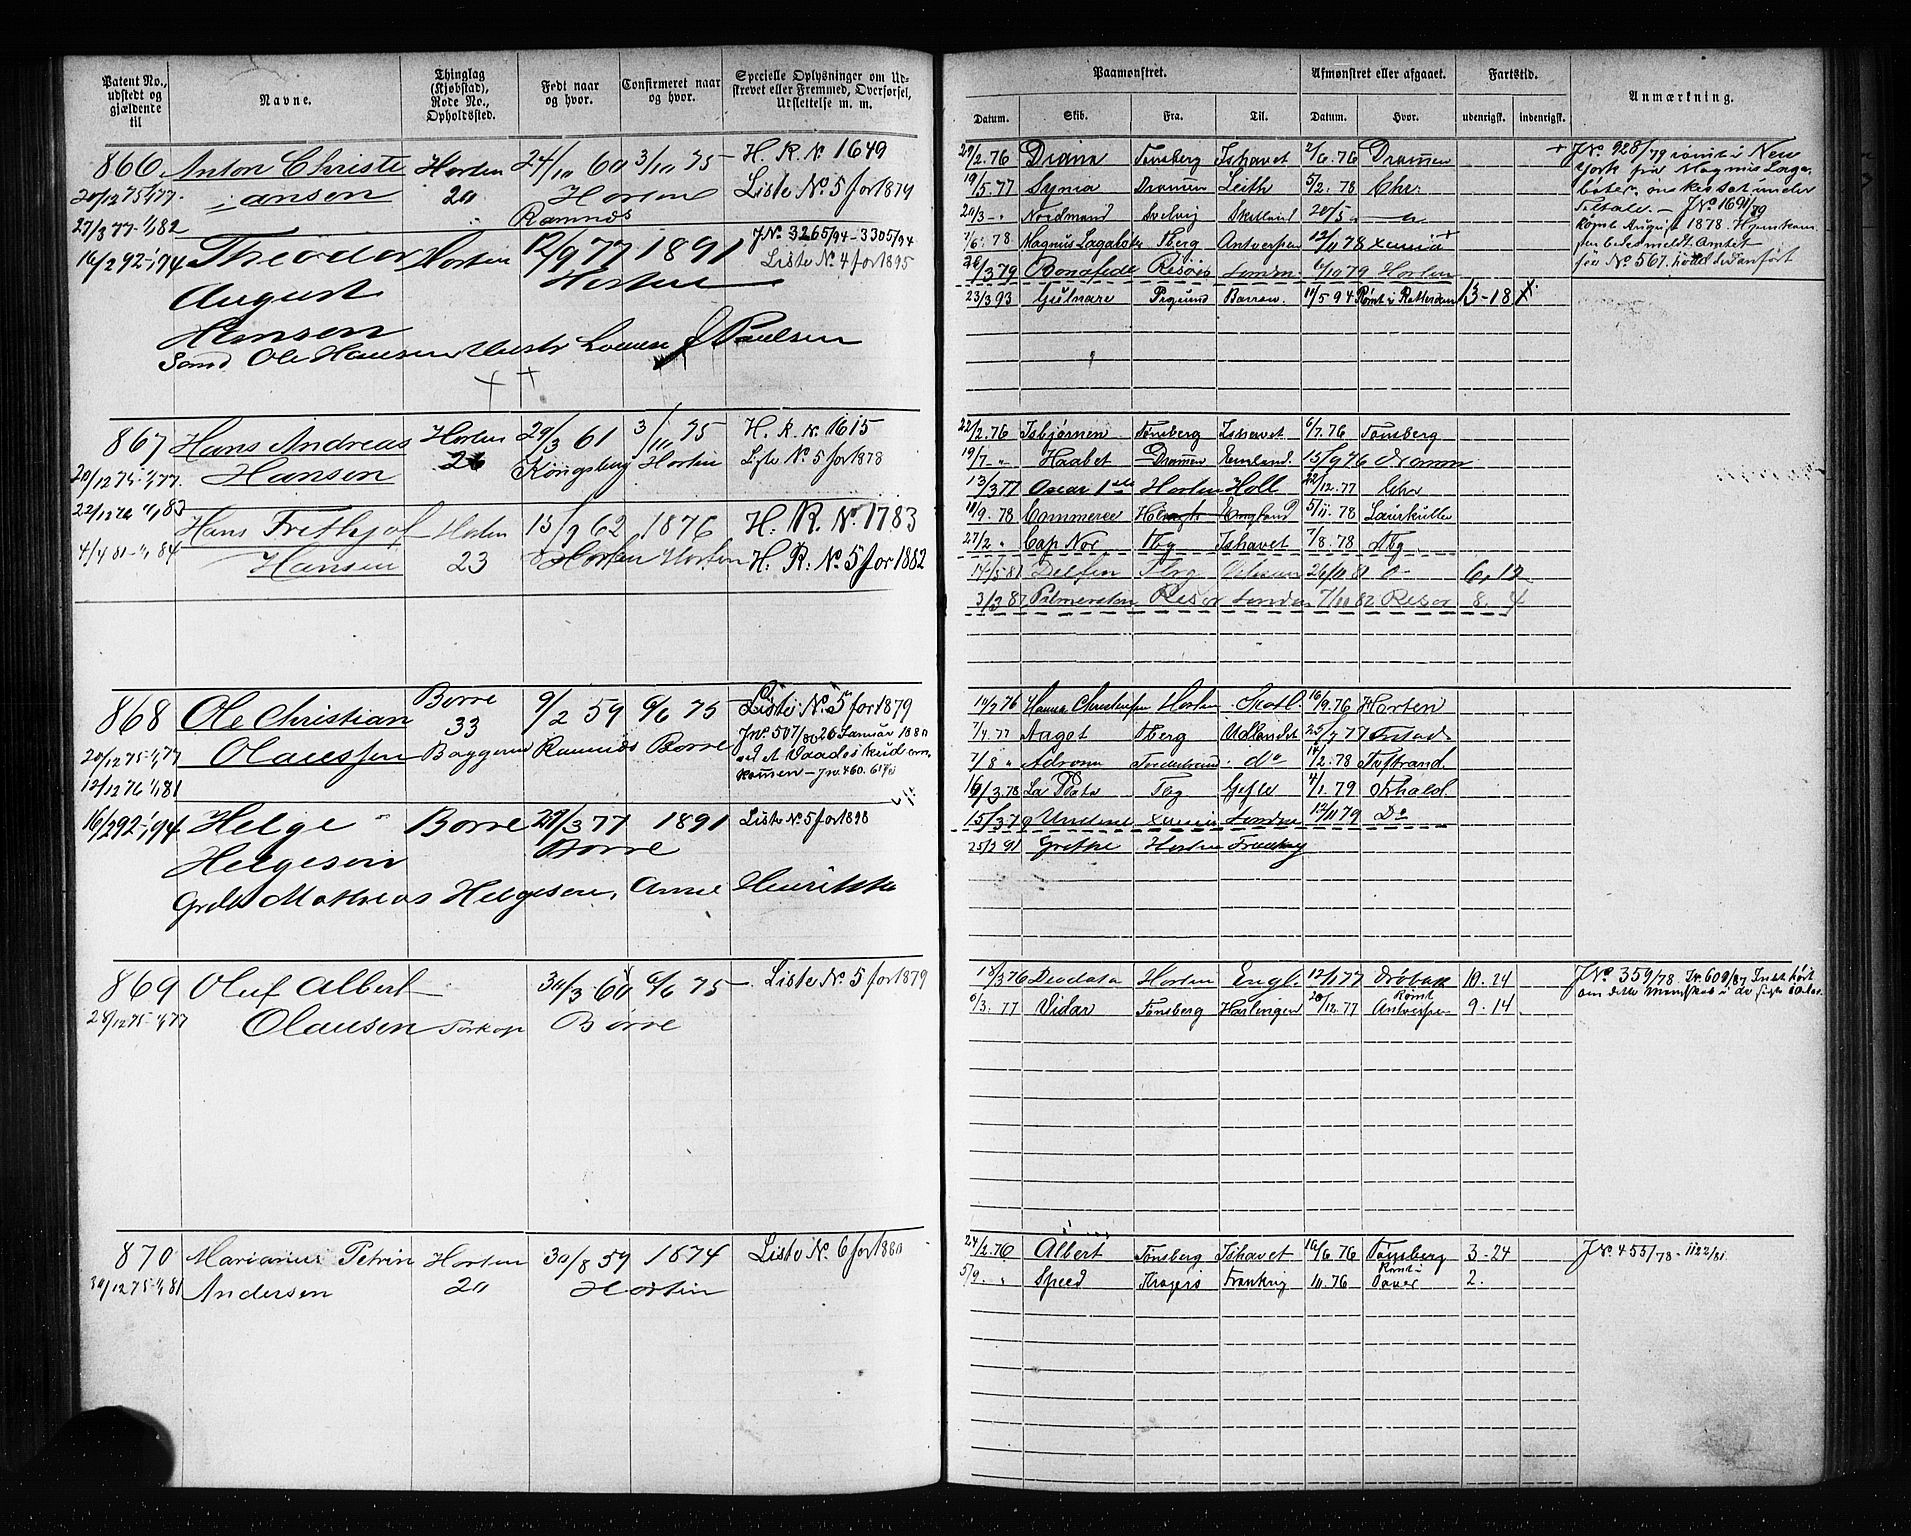 Patent No., udstedt og gjældende til
Navne.
Thinglag (Kjøbstad), Rode No., Opholdssted.
Født naar og hvor.
Confirmeret naar og hvor.
Specielle Oplysninger om Udskrevet eller Fremmed, Overførsel, Udslettelse m. m.
Paamønstret.
Afmønstret eller afgaaet.
Fartstid.
Anmærkning.
Datum. Skib. Fra. Til. Datum. Hvor. udenrigsk. indenrigsk.
866 Anton Christi Horten 24/10 60 3/10 75 H. R. No 1649
20/12 75-1/1 77 Jansen 20 Horten Liste No. 5 for 1879
27/3 77-1/1 82 Ramnæs
Theodor Horten 12/9 77 1891 JNo 3265/94-3305/94
16/2 92-1/1 94 August Horten Liste No. 4 for 1895
Hansen
Sand Ole Hansen Paulsen
29/2.76 Diana Tønsberg Ishavet 2/6.76 Drammen
19/5.77 Synia Drammen Leith 5/2.78 Chr.
20/3 - " Nordmand Svelvig Skotland 20/5
7/6.78 Magnus Lagabøter Tberg Antwerpen 12/11 78 Xania
26/3 79 Bonafide Risør London 6/10 79 Horten
23/3 93 Gulnare Prgrund Barrow. 11/5 94 Rømt i Rotterdam 13-18
JNo 928/79 rømt i New
York fra Magnus Laga-
bøter, ønskes sat under
Tiltale. - JNo 1691/79
Rømt August 1878. Hjemkom-
867 Hans Andreas Horten 29/3 61 3/10 75 H. R. N. 1615
20/12 75-1/1 77 Hansen 26 Kongsberg Horten Liste No. 5 for 1878
22/12 76 1/1 83
Hans Frithjof Horten 15/9 62 1876 H. R. No. 1783
4/4 81-1/1 84 Hansen 23 Horten Horten H. R. No. 5 for 1882
22/2.76 Isbjørnen Tønsberg Ishavet 6/7.76 Tønsberg
19/7 - " Haabet Drammen 15/9 76
13/3 77 Oscar 1ste Horten Holl 22/12.77 Xchr
10/9.78 Commerce England 5/11.78 Laurkullen
27/2 " Cap Nor Tbg Ishavet 7/8.78 Tbg.
14/5 81 Delfin Tbrg 26/10 81 6, 12
3/3 82 Palmerston Risør London 7/10 82 Risør 8. 4
868 Ole Christian Borre 33 9/2 59 6/6 75 Liste No. 5 for 1879
20/12 75-1/1 77 Olaussen Baggerud Ramnæs Borre JNo 507/80 26 Januar 1880
12/12 76 1/1 81 ved et Vaadeskud om-
kommen
16/2 92-1/1 94 Helge Borre 29/3 77 1891 Liste No. 5 for 1898
Helgesen Borre
Grdbr Mathias Helgesen, Anne Henrikke
14/2 76 Hanna Christensen Horten Skotl. 16/9.76 Horten
7/4.77 Aaget Tberg Udlandet 25/7 77
7/8 " Adrona do 14/2.78
16/3.78 La Plata Tbg Gefle 4/1.79 Frhald.
15/3 79 Undine Xania London 12/11 79 Do
25/3 91 Grethe Horten Frankrig
869 Oluf Albert 30/3 60 6/6 75 Liste No. 5 for 1879
28/12 75-1/1 77 Olausen Torkop Borre
18/3 76 Deodata Horten Engl. 12/1 77 Drøbak 10. 24
6/3. 77 Vidar Tønsberg Harlingen 20/12.77 Rømt Antwerpen 9. 14
JNo 359/78 JNo 609/87 Intet hørt
om dette Mandskab i de sidste 10 Aar.
870 Marianius Petrin Horten 30/8 59 1874 Liste No. 6 for 1880
30/12 75-1/1 81 Andersen 20 Horten
24/2.76 Albert Tønsberg Ishavet 16/6.76 Tønsberg 3-24
5/9. " Speed Kragerø Frankrig 10.76 Rømt i Dover 2.
JNo 455/78 - 1122/81